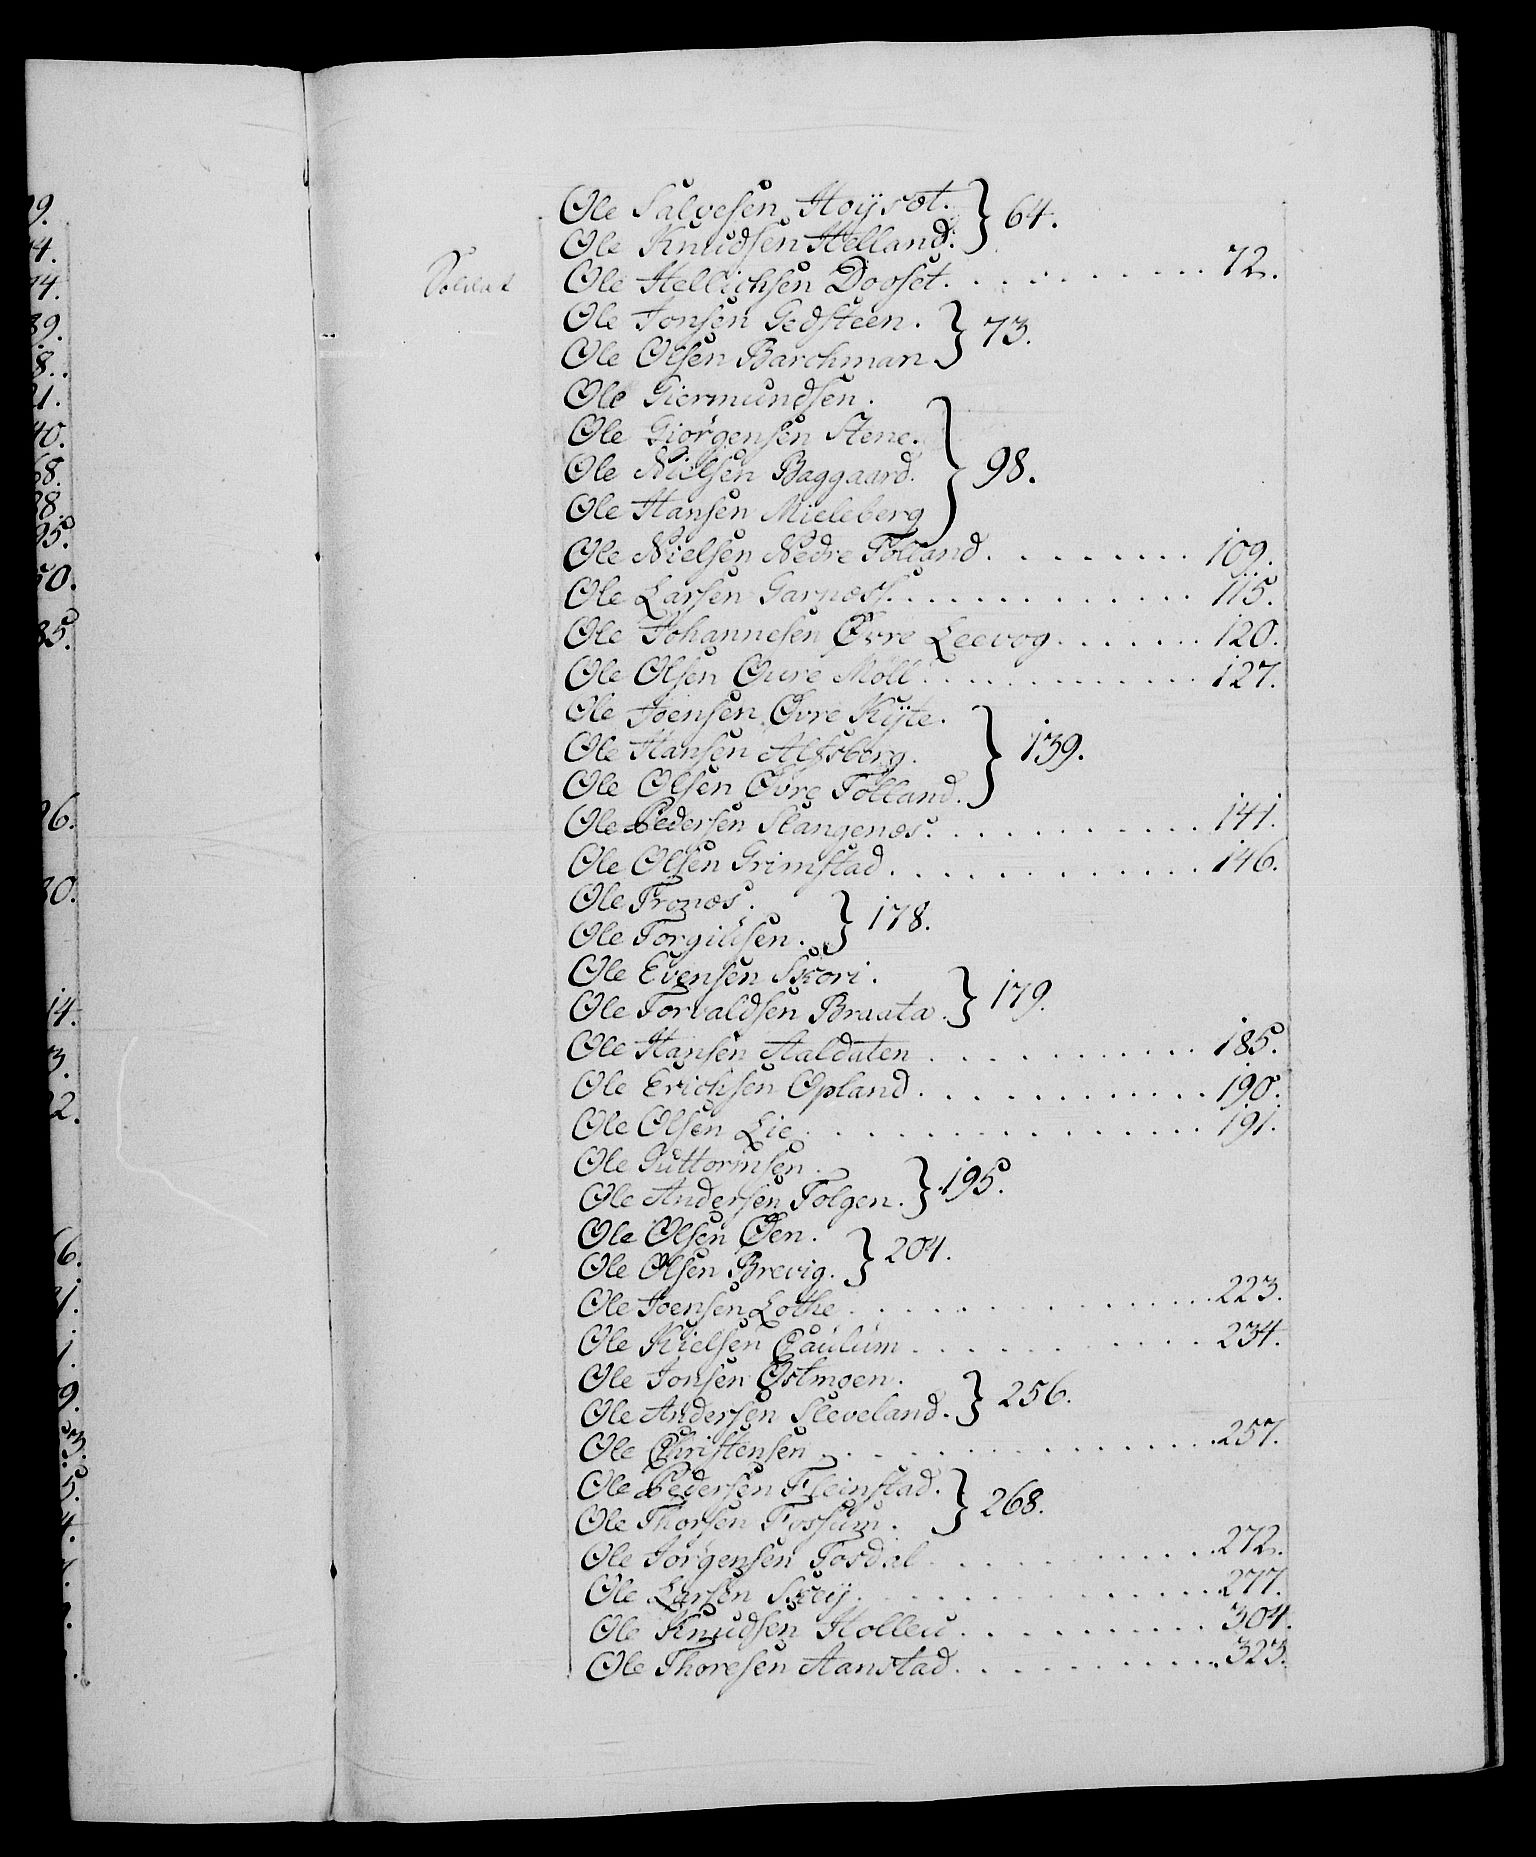 Ole Salvesen Høysæt. } 64.
Ole Knudsen Helland.
Soldat Ole Hellichsen Dooset. . . . . . . . . 72.
Ole Jonsen Gedsteen. } 73.
Ole Olsen Barchman
Ole Giermundsen.
Ole Giörgensen Stene. } 98.
Ole Nielsen Baggaard.
Ole Hansen Mieleberg
Ole Nielsen Nedre Tolland . . . . . . . . 109.
Ole Larsen Garnæss . . . . . . . . . . . 115.
Ole Johannesen Øvre Leevog . . . . . . . 120.
Ole Olsen Øvre Möll . . . . . . . . . . . 127.
Ole Joensen Øvre Kÿte. } 139.
Ole Hansen Alfsberg.
Ole Olsen Øvre Tolland.
Ole Pedersen Slangenæs. . . . . . . . . . . 141.
Ole Olsen Grimstad . . . . . . . . . . . . 146.
Ole Fronæs. } 178.
Ole Torgilisen.
Ole Evensen Skori. } 179.
Ole Torvaldsen Braata.
Ole Hansen Aaldalen . . . . . . . . . . 185.
Ole Erichsen Opland . . . . . . . . . . . 190.
Ole Olsen Lie . . . . . . . . . . . . . . . 191.
Ole Guttormsen. } 195.
Ole Andersen Folgen.
Ole Olsen Øen. } 204.
Ole Olsen Brevig.
Ole Joensen Lothe . . . . . . . . . . . . . 223.
Ole Kielsen Paulum . . . . . . . . . . . 234.
Ole Jonsen Østmoen. } 256.
Ole Andersen Sleveland.
Ole Christensen . . . . . . . . . . . . . . 257.
Ole Pedersen Fleinstad. } 268.
Ole Thorsen Fossum.
Ole Jörgensen Fosdal . . . . . . . . . . . 272.
Ole Larsen Skeiÿ . . . . . . . . . . . . . 277.
Ole Knudsen Hollen . . . . . . . . . . . 304.
Ole Thoresen Aanstad . . . . . . . . . . 323.